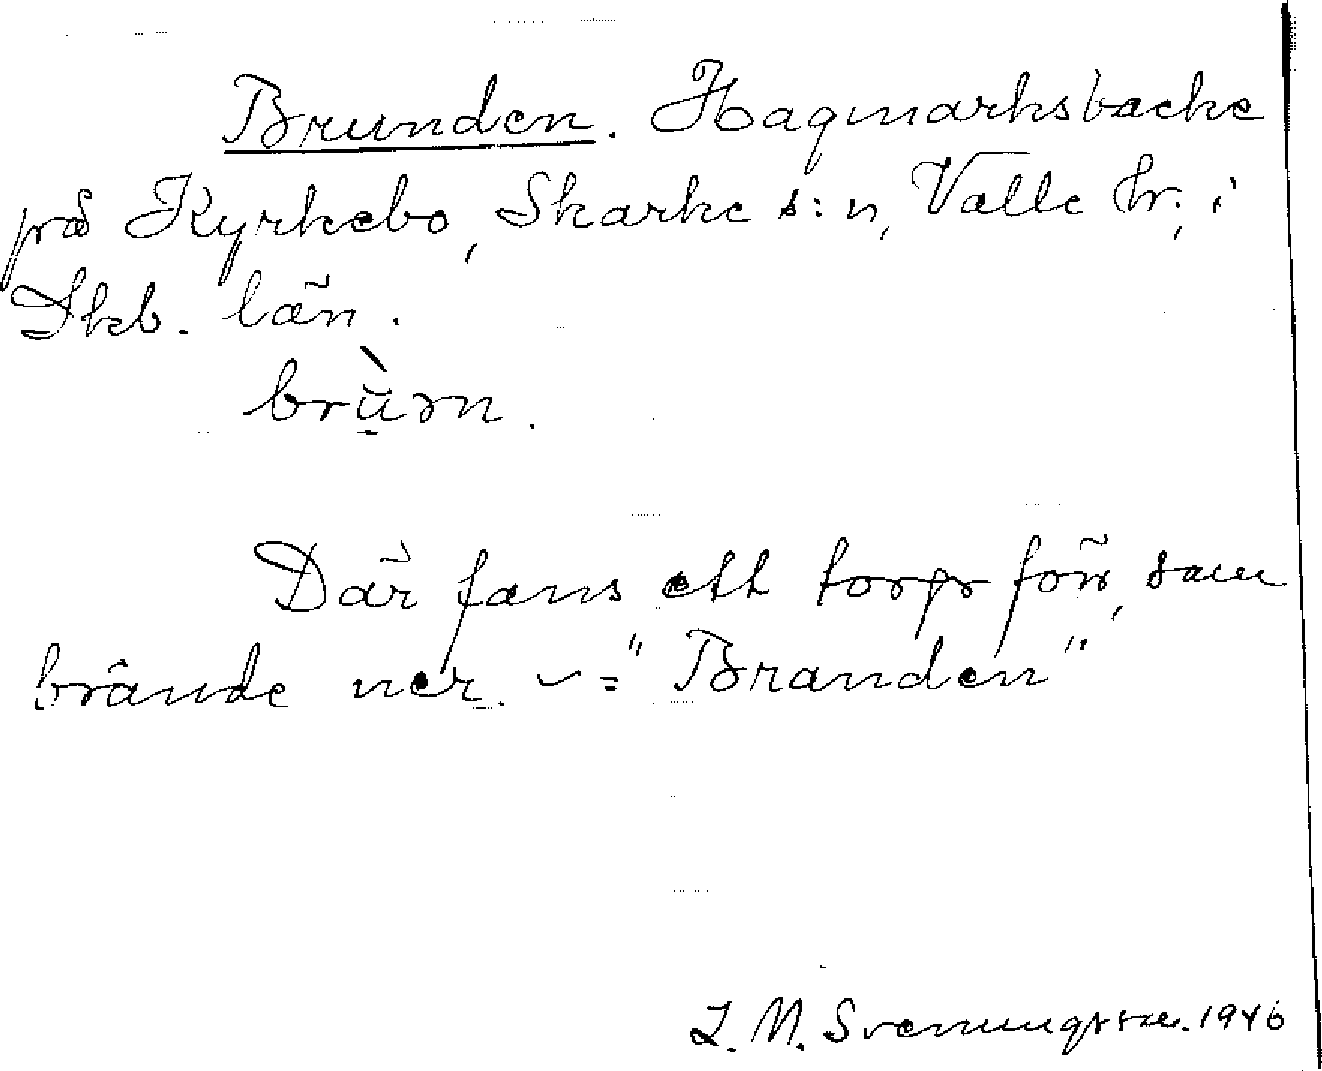 Brunden. Hagmarksbacke
på Kyrkebo, Skarke s:n, Valle hr., i
Skb. län.
brùən.
Där fans ett torp förr, som
brände ner. ~ = "Branden"
J. M. Svenungsson. 1946